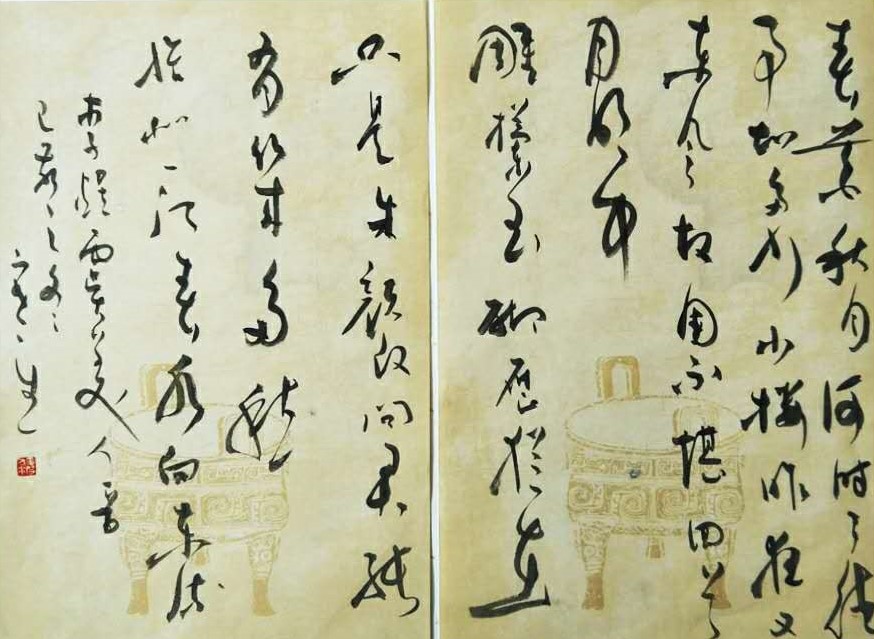 春花秋月何时了往
事知多少小楼昨夜又
东风故国不堪回首
月明中
雕栏玉砌应犹在
只是朱颜改问君能
有几多愁
恰似一江春水向东流
李煜虞美人
己亥之冬